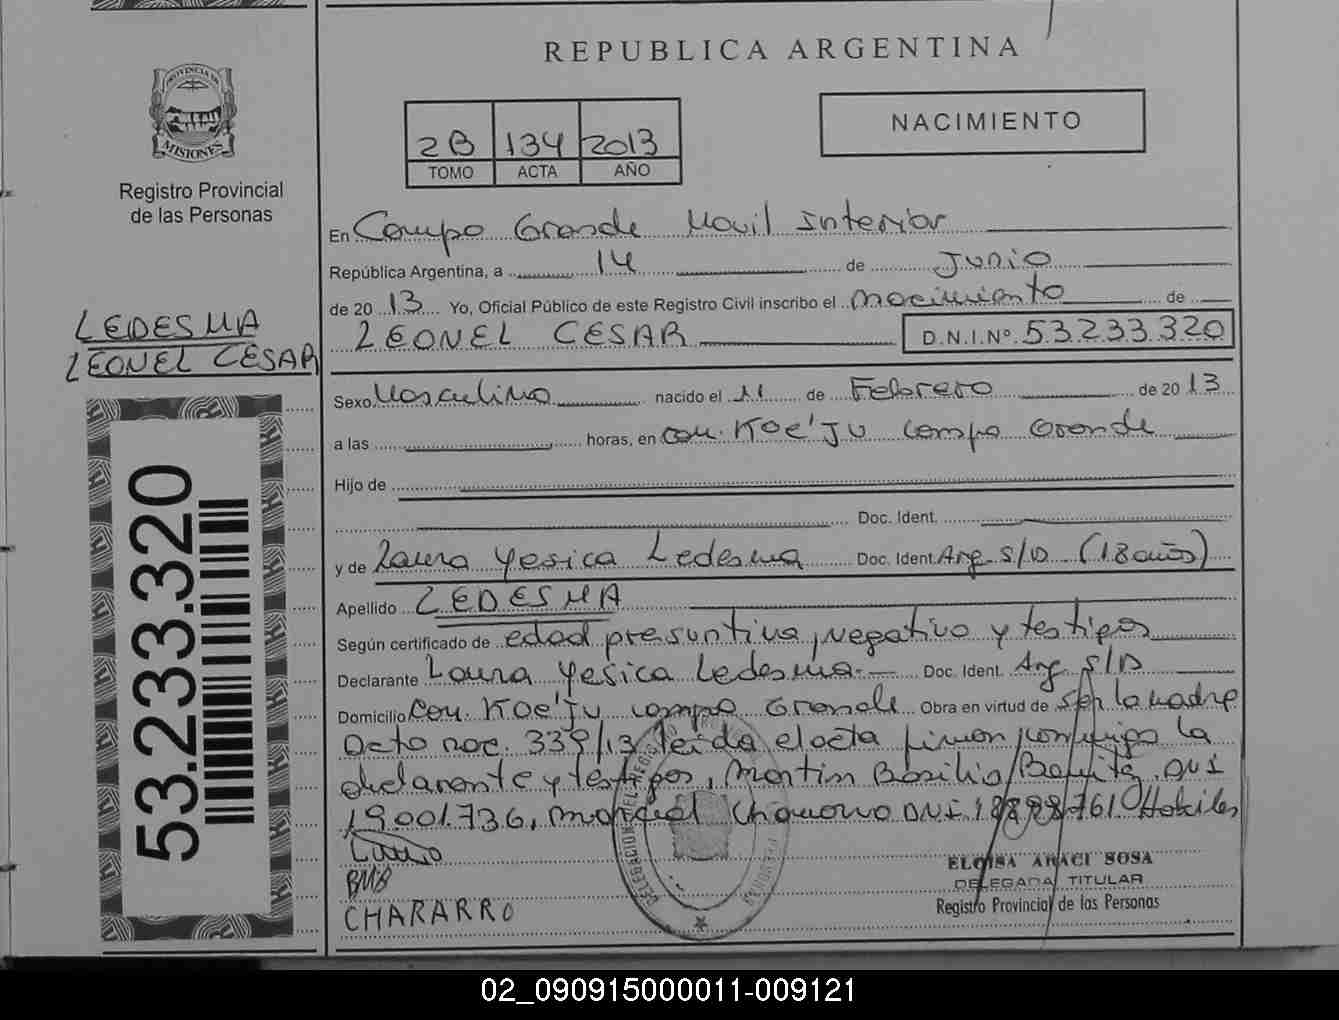 REPUBLICA ARGENTINA
PROVINCIA DE
MISIONES
Registro Provincial
de las Personas
2B 134 2013
TOMO ACTA AÑO
NACIMIENTO
En Campo Grande Movil Interior
República Argentina, a 14 de Junio
de 20 13 Yo, Oficial Público de este Registro Civil inscribo el nacimiento de
LEONEL CESAR D.N.I.Nº. 53.233.320
LEDESMA
LEONEL CESAR
Sexo Masculino nacido el 11 de Febrero de 20 13
a las horas, en com. Koe'Ju Campo Grande
Hijo de
Doc. Ident.
y de Laura Yesica Ledesma Doc. Ident. Arg. S/D (18 años)
Apellido LEDESMA
Según certificado de edad presuntiva, negativo y testigos
Declarante Laura Yesica Ledesma Doc. Ident. Arg. S/D
Domicilio Com. Koe'Ju Campo Grande Obra en virtud de ser la madre
Dcto nac. 339/13 leida el acta firman conmigo la
declarante y testigos, Martin Basilio Benitez DNI
19.001.736, DNI. Habiles
BMB
CHARARRO
ELOISA ARACI SOSA
DELEGADA TITULAR
Registro Provincial de las Personas
53.233.320
02_090915000011-009121